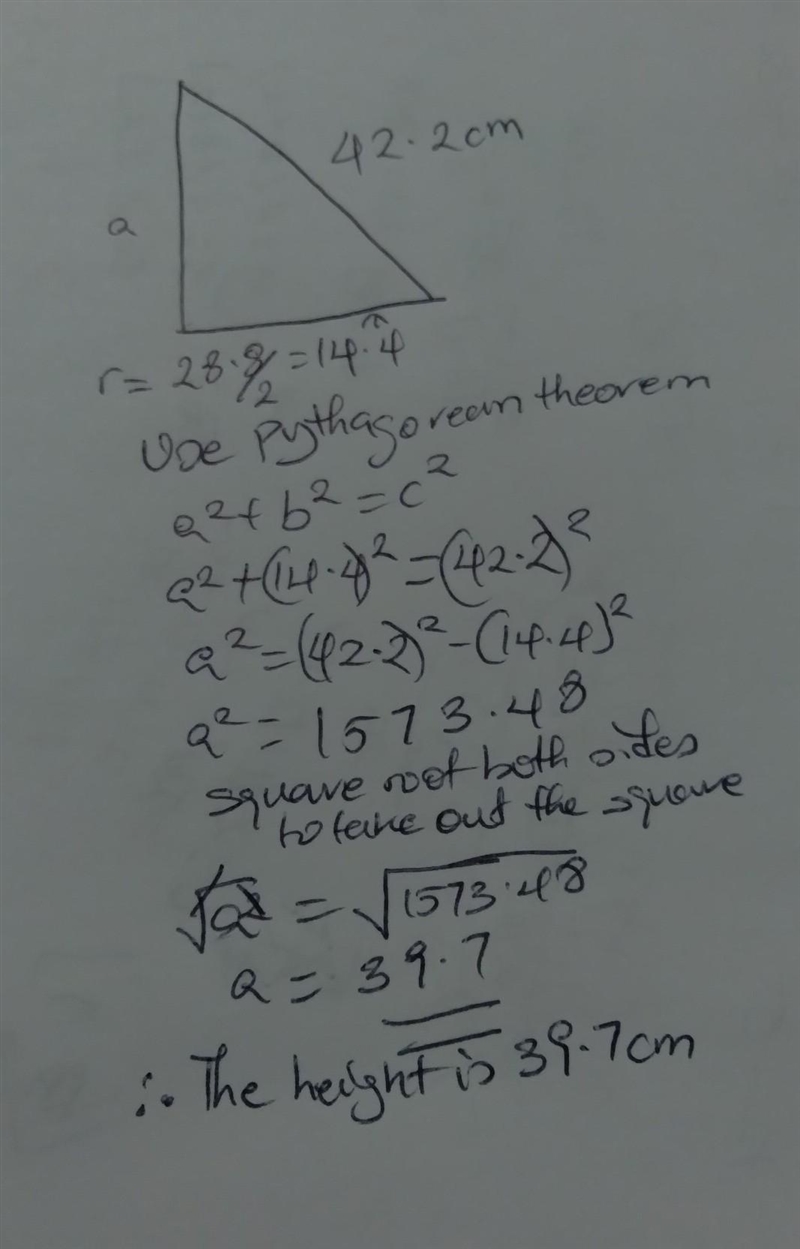 42.2cm
a
r = 28.8/2 = 14.4
Use Pythagorean theorem
a² + b² = c²
a² + (14.4)² = (42.2)²
a² = (42.2)² - (14.4)²
a² = 1573.48
square root both sides
to take out the square
√a² = √1573.48
a = 39.7
∴ The height is 39.7cm